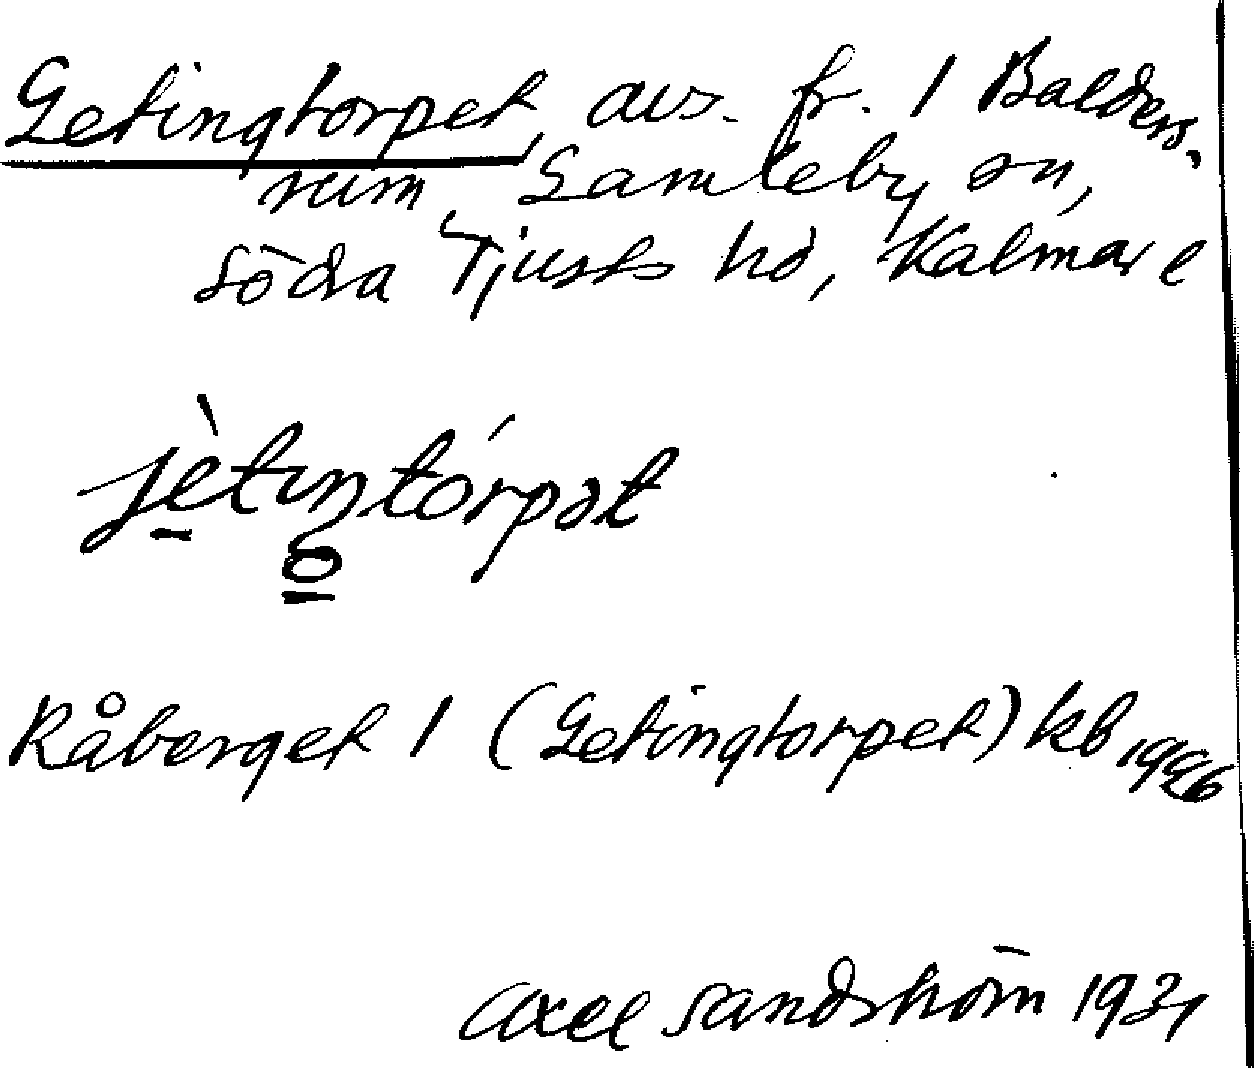 Getingtorpet, avs. fr. 1 Balders-
rum, Gamleby sn,
södra Tjusts hd, Kalmar l
jètiŋtórpət
Råberget 1 (Getingtorpet) kb 1946
Axel Sandström 1931